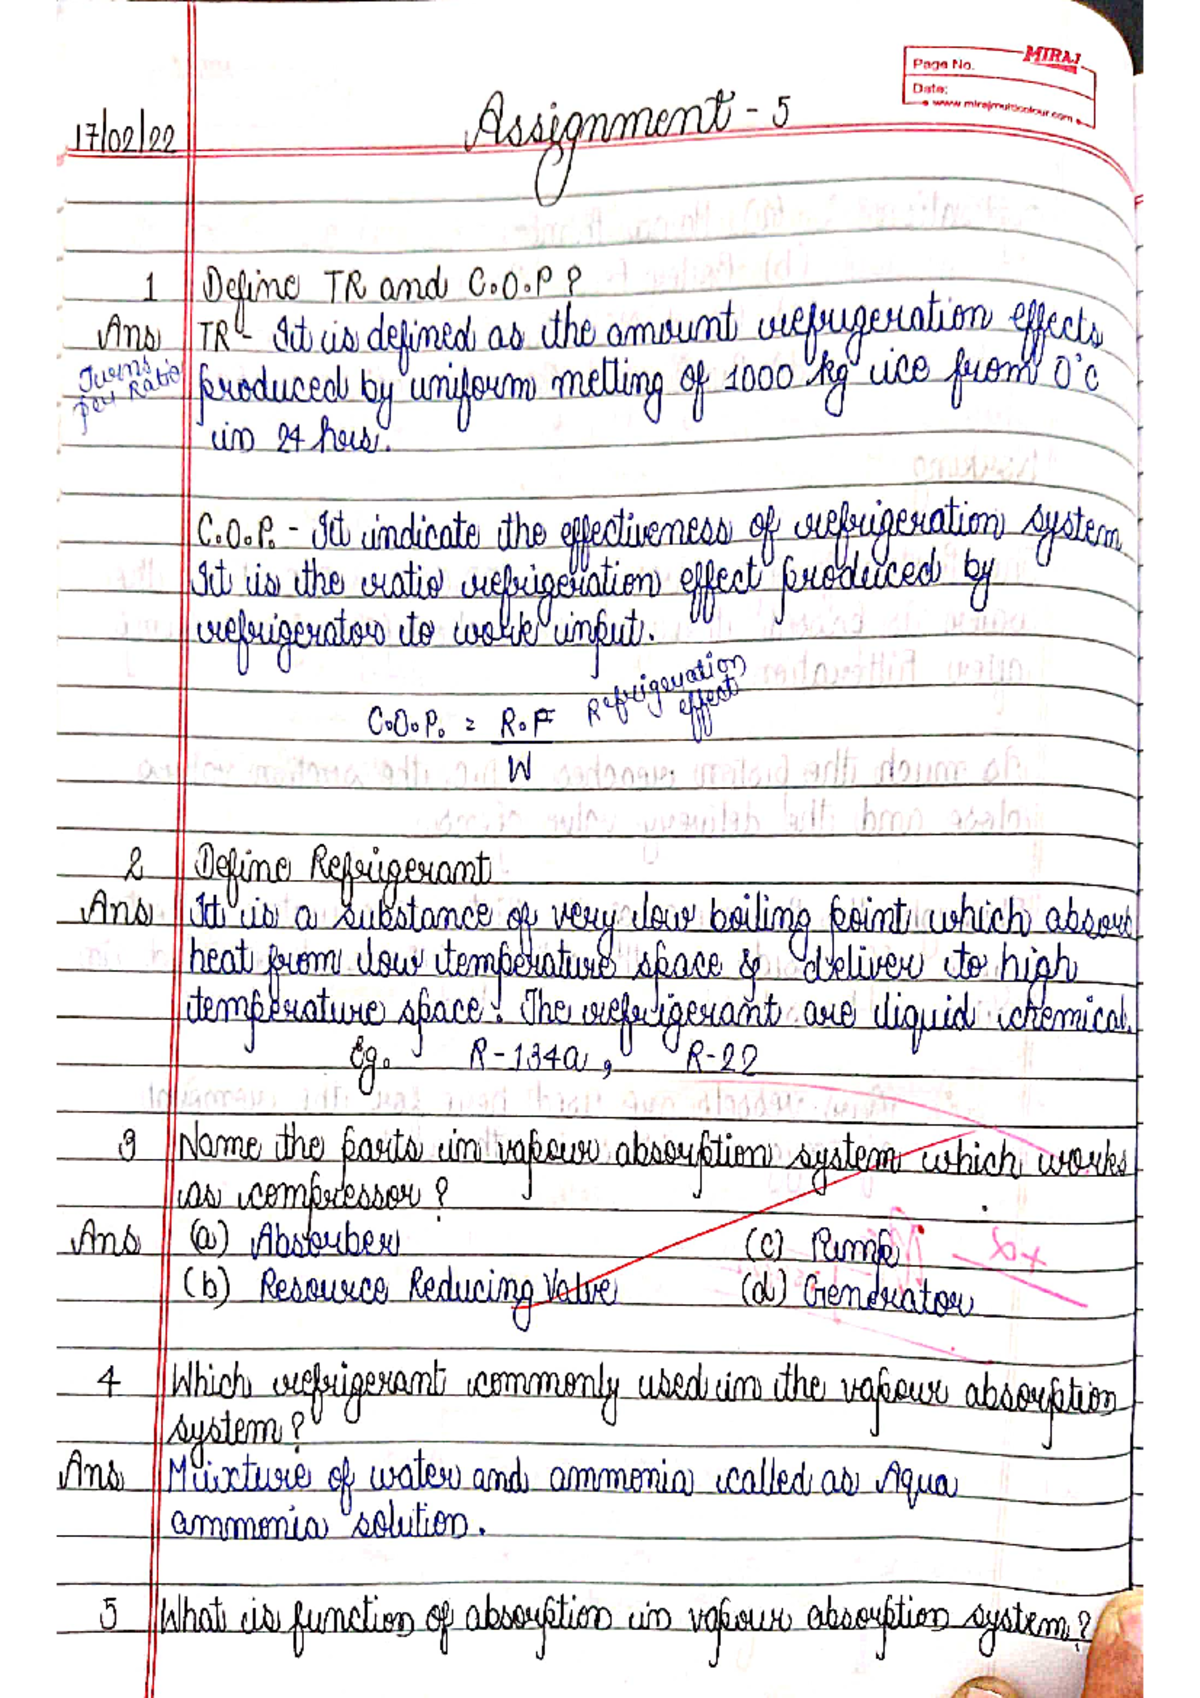 MIRAJ
Page No.
Date:
www.mirajmulticolour.com
17/02/22
Assignment - 5
1 Define TR and C.O.P ?
Ans TR - It is defined as the amount refrigeration effects
Turns per Ratio
produced by uniform melting of 1000 kg ice from 0°c
in 24 hrs.
C.O.P. - It indicate the effectiveness of refrigeration system
It is the ratio refrigeration effect produced by
refrigerator to work input.
C.O.P. = R.F Refrigeration effect
W
2 Define Refrigerant
Ans It is a substance of very low boiling point which absorb
heat from low temperature space & deliver to high
temperature space. The refrigerant are liquid chemical.
Eg. R-134a, R-22
3 Name the parts in vapour absorption system which works
as compressor ?
Ans (a) Absorber (c) Pump
(b) Resource Reducing Valve (d) Generator
4 Which refrigerant commonly used in the vapour absorption
system ?
Ans Mixture of water and ammonia called as Aqua
ammonia solution.
5 What is function of absorption in vapour absorption system ?